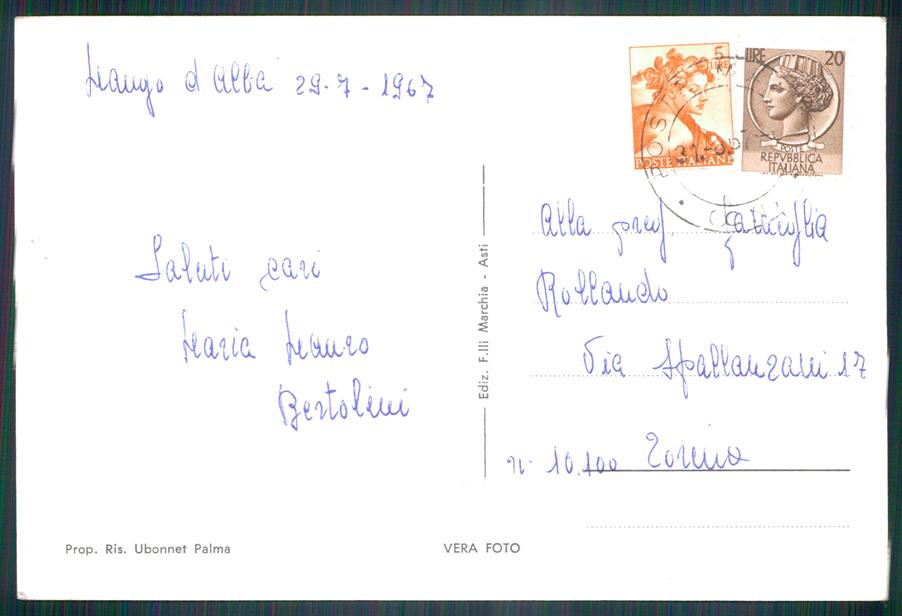 Mango d'Alba 29-7-1967
Saluti cari
Maria Mauro
Bertolini
Ediz. F.lli Marchia - Asti
5
LIRE
POSTE ITALIANE
LIRE 20
POSTE
REPVBBLICA
ITALIANA
Alla preg. famiglia
Rollando
Via Spallanzani 17
n. 10.100 Torino
Prop. Ris. Ubonnet Palma
VERA FOTO